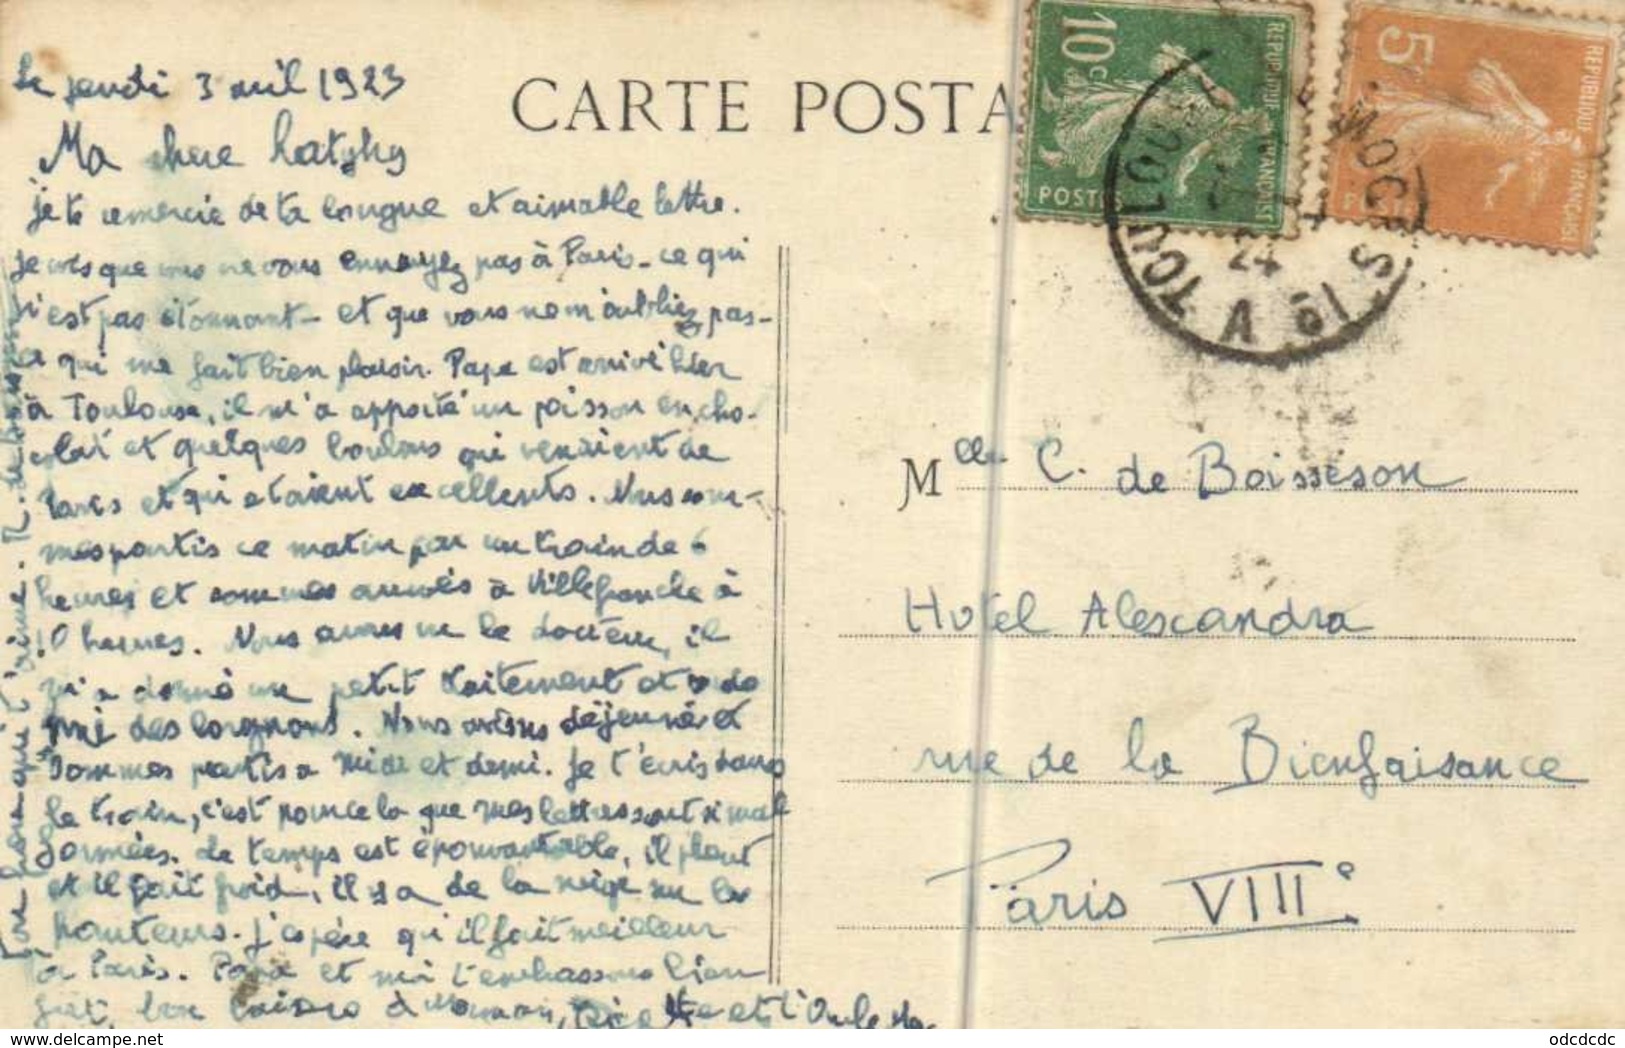 le jeudi 3 avril 1923
Ma chere Kathy
je te remercie de ta longue et aimable lettre.
je vois que vous ne vous ennuyez pas à Paris - ce qui
n'est pas étonnant - et que vous ne m'oubliez pas -
ce qui me fait bien plaisir. Papa est arrivé hier
à Toulouse, il m'a apporté un poisson en cho-
colat et quelques bonbons qui venaient de
Paris et qui etaient excellents. Nous som-
mes partis ce matin par un train de 6
heures et sommes arrivés à Villefranche à
10 heures. Nous avons vu le docteur, il
m'a donné un petit traitement et ordo
nné des lorgnons. Nous avons déjeuné et
sommes partis a midi et demi. Je t'écris dans
le train, c'est pour cela que mes lettres sont si mal
formées. Le temps est épouvantable, il pleut
et il fait froid, il y a de la neige sur les
hauteurs. J'espère qu'il fait meilleur
à Paris. Papa et moi t'embrassons bien
fort, bons baisers à Maman, et l'Oncle
Ton qui t'aime. R. de
CARTE POSTA
10c
POSTE
5
TOULOUSE A
24
Mlle C. de Boisseson
Hotel Alexandra
rue de la Bienfaisance
Paris VIIIe
odcdcdc